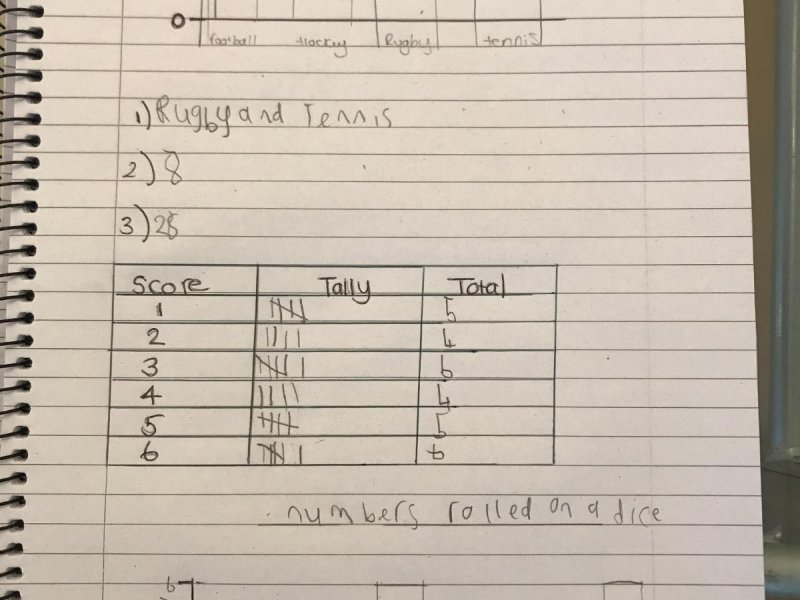 0
football Hockey Rugby tennis
1) Rugby and Tennis
2) 8
3) 28
Score Tally Total
1 5
2 4
3 6
4 4
5 5
6 6
numbers rolled on a dice
6